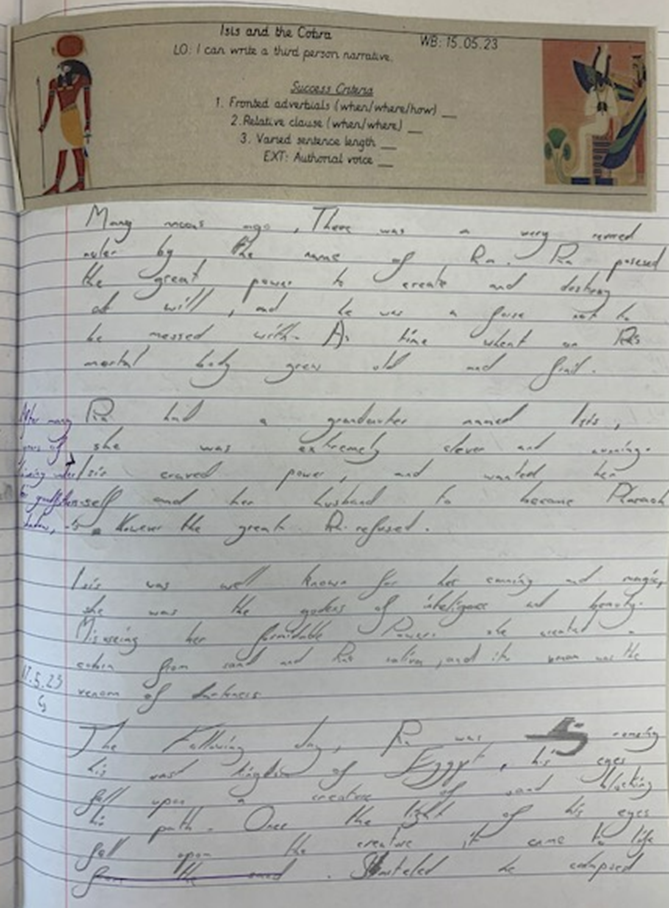 Isis and the Cobra
WB: 15.05.23
LO: I can write a third person narrative.
Success Criteria
1. Fronted adverbials (when/where/how) __
2. Relative clause (when/where) __
3. Varied sentence length __
EXT: Authorial voice __
Many moons ago, There was a very
ruler by the name of Ra. Ra posesed
the great power to create and destroy
at will, and he was a forse not to
be messed with. As time whent on Ra's
mortal body grew old and frail.
Ra had a named Isis,
she was extremely clever and
Isis craved power, and wanted her
self and her husband to become Pharaoh
However the great Ra refused.
After many
years of
Isis was well known for her cunning and magic,
she was the of and beauty.
her formidable Powers she created a
cobra from sand and Ras and its venom was the
17.5.23
venom of darkness.
The Following day, Ra was
his vast kingdom of Egypt, his eyes
fell upon a creature of sand blocking
his path. Once the light of his eyes
fell upon the creature it came to life
from the sand. he